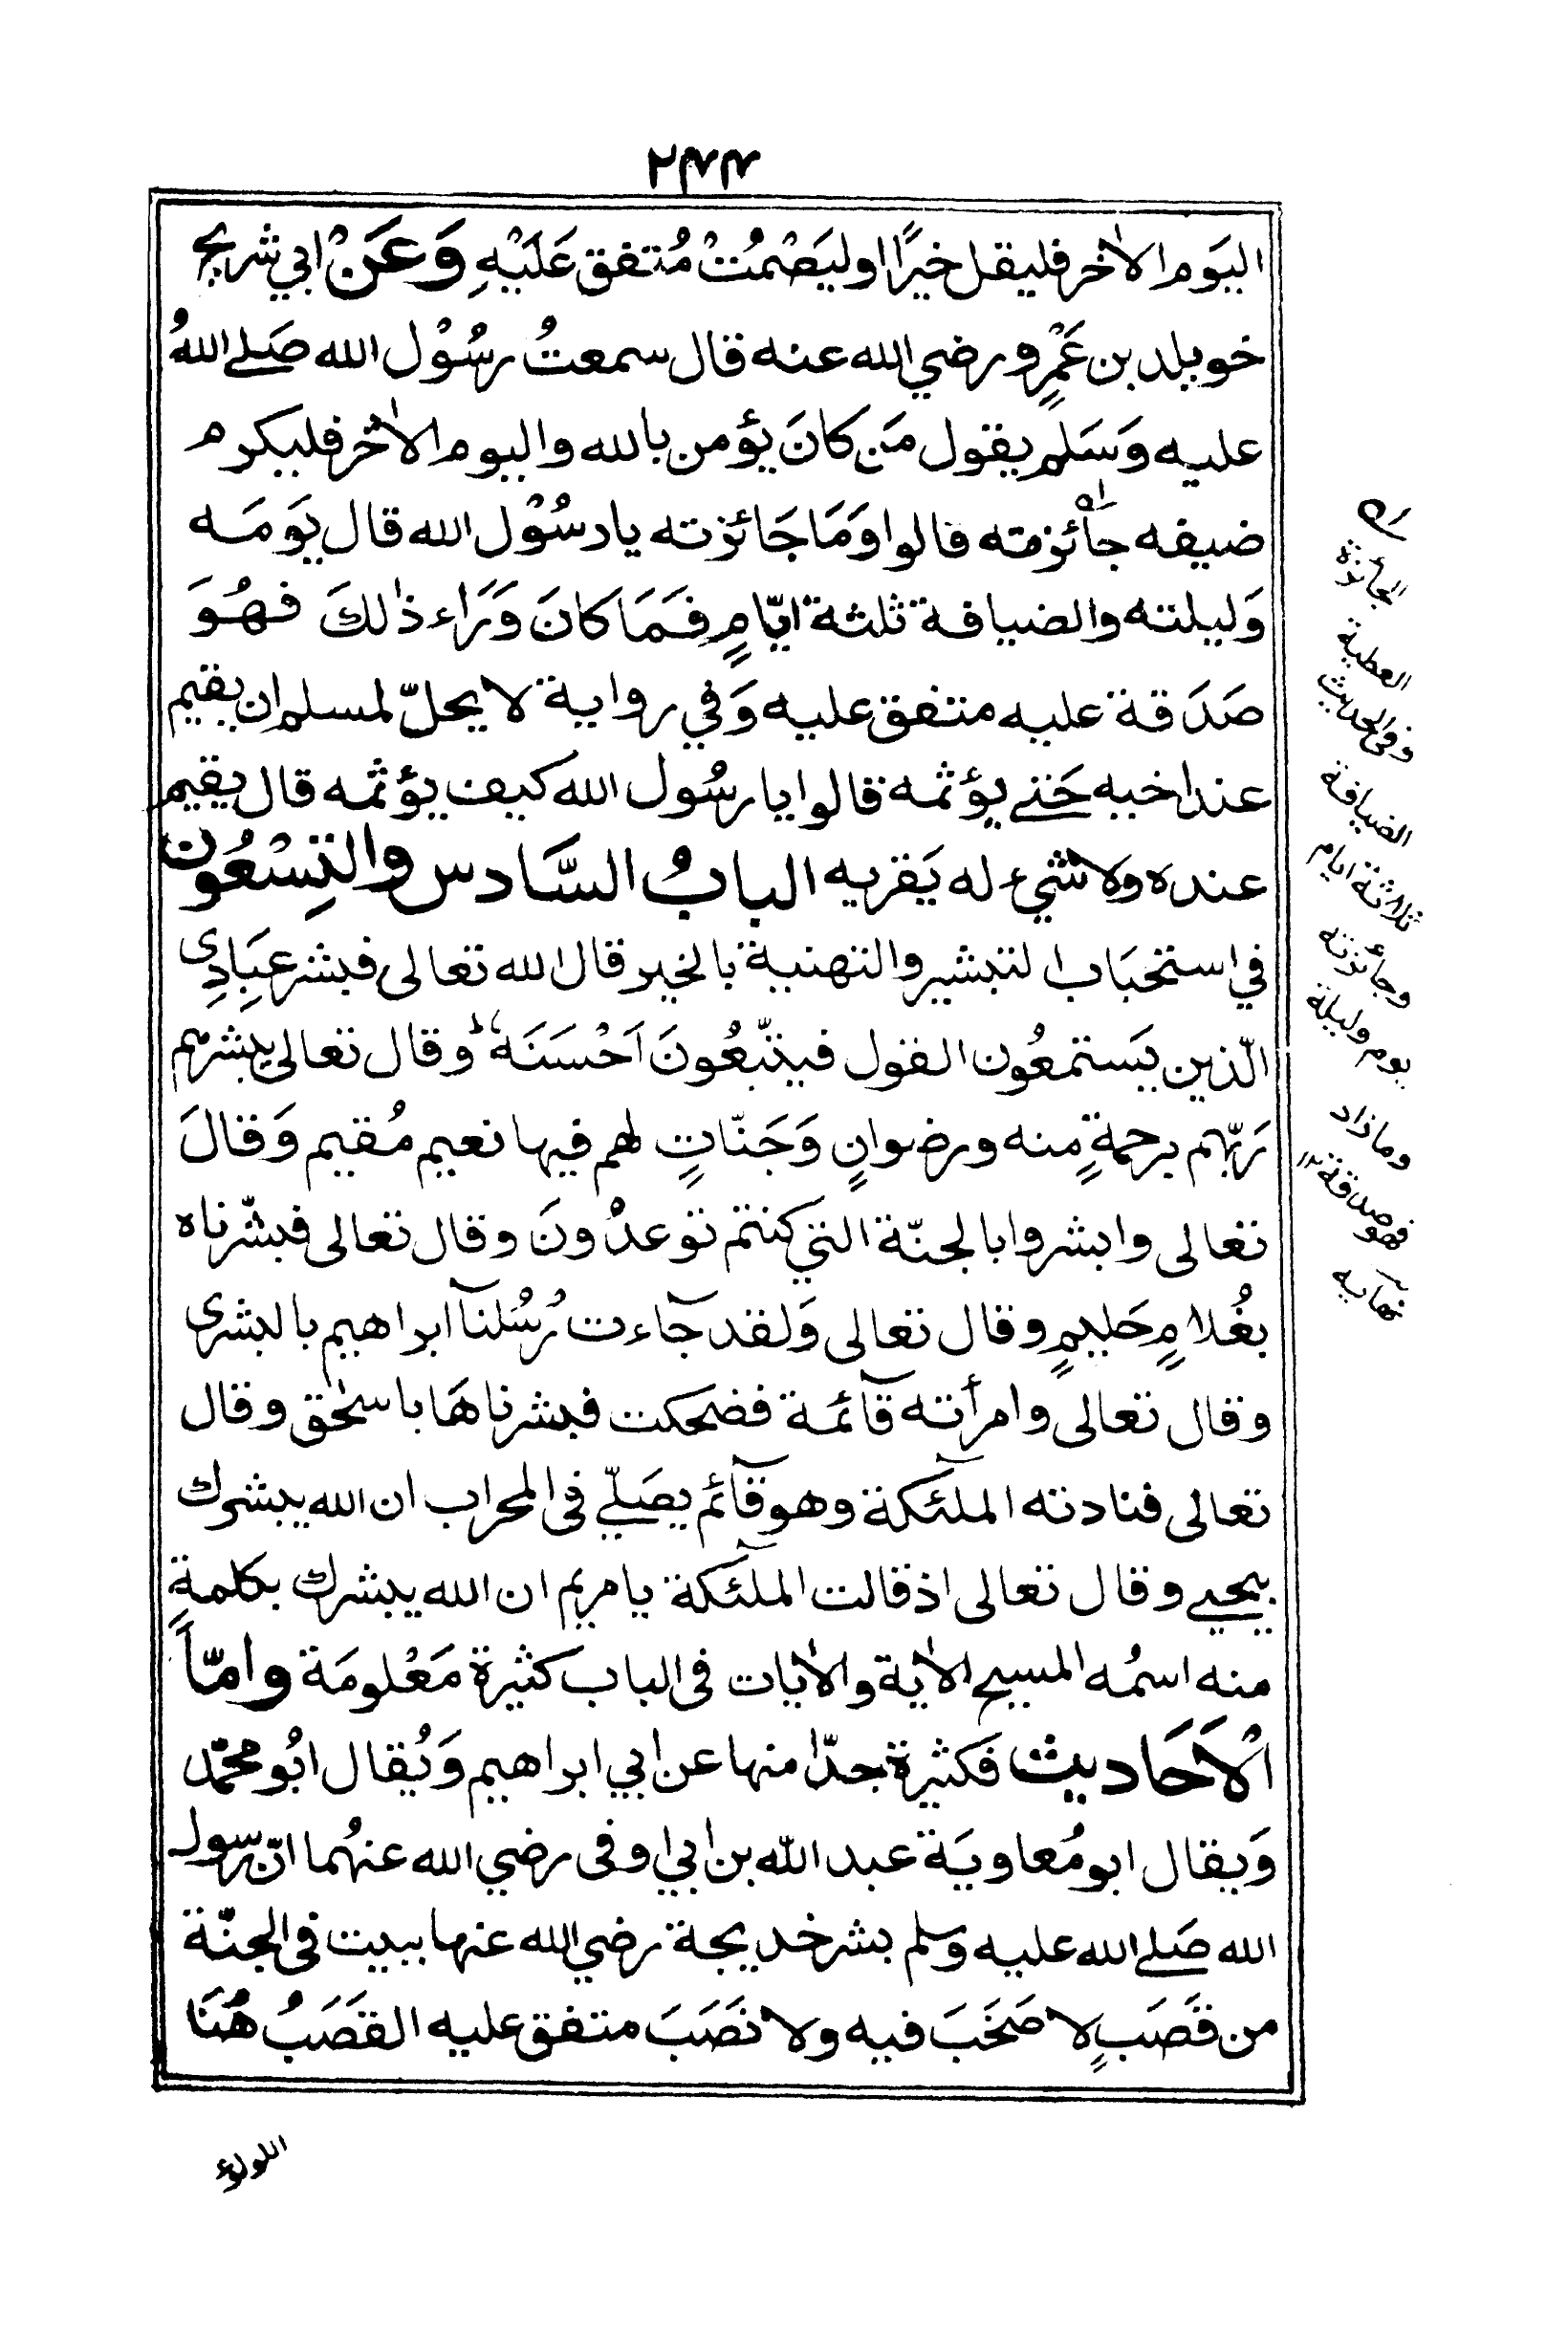 ٢٤٤
اليَوم الاٰخر فليقل خيرًا اوليَصْمُتْ مُتفق عَلَيْهِ وَعَنْ ابي شريح
خويلد بن عَمْرٍو رضي الله عنه قال سمعتُ رسُوْل الله صَلے اللهُ
عليه وَسَلم يقول مَن كانَ يؤمن بالله واليوم الاٰخر فليكرم
ضيفه جائزته قالوا وَمَا جَائزته يارسُوْل الله قال يَومَه
وَليلته والضيافة ثلثة ايّامٍ فَمَا كانَ وَرَاء ذٰلكَ فهُوَ
صَدَقة عليه متفق عليه وَفي رواية لا يحلّ لمسلم ان يقيم
عند اخيه حَتے يؤثمه قالوا يا رسُول الله كيف يؤثمه قال يقيم
عنده ولا شيء له يَقريه البابُ السَّادس والتِسْعُون
في استحبَاب التبشير والتهنية بالخير قال الله تعالى فبشر عبَادِى
الّذين يَستمعُون القول فيتّبعُونَ اَحْسَنَهٗ وقال تعالى يبشرهم
رَبّهم برحمةٍ منه ورضوانٍ وَجَنّاتٍ لهم فيها نعيم مُقيم وَقالَ
تعالى وابشروا بالجنّة التي كنتم توعدُونَ وقال تعالى فبشّرناه
بغُلامٍ حَليمٍ وقال تعالى وَلقد جآءت رُسُلنآ ابراهيم بالبشرى
وقال تعالى وامرأته قآئمة فضحكت فبشرناهَا باسحٰق وقال
تعالى فنادته الملئكة وهو قآئم يصَلّي فى المحراب ان الله يبشرك
بيحيے وقال تعالى اذ قالت الملئكة يا مريم ان الله يبشرك بكلمةٍ
منه اسمُه المسيح الاٰية والاٰيات فى الباب كثيرة مَعْلومَة وامّا
الْاَحَاديث فَكثيرة جدّا منها عن ابي ابراهيم وَيُقال ابُو محمّد
وَيقال ابو مُعاويَة عبد الله بن ابي اوفى رضي الله عنهُما انّ رسول
الله صَلے الله عليه وسلم بشر خديجة رضي الله عنها ببيت فى الجنّة
من قَصَبٍ لا صَخَبَ فيه ولا نَصَبَ متفق عليه القَصَبُ هُنَا
الجائزة
العطية
وفى الحديث
الضيافة
ثلاثة ايام
وجائزته
يوم وليلة
وما زاد
فهو صدقة
نهايه
اللولوء